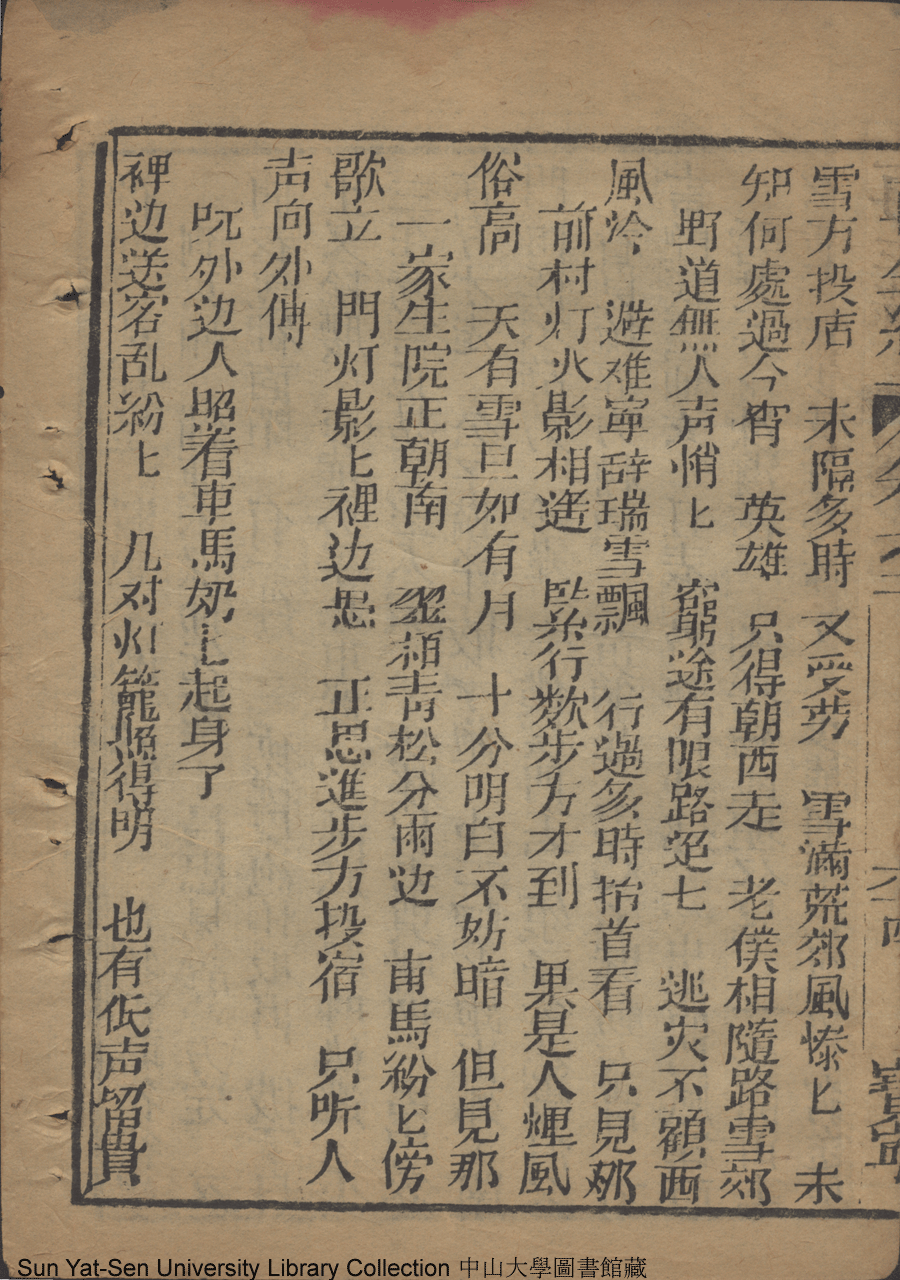 雪方投店　未隔多時又受劳　雪滿荒郊風惨匕　未
知何處過今宵　英雄只得朝西走　老僕相隨路雪郊
野道無人声悄匕　窮途有限路迢七　逃灾不顧西
風冷　遊难寧辞瑞雪飄　行過多時抬首看　只見那
前村灯火影相遙　緊行数步方才到　果是人煙風
俗高　天有雪旦如有月　十分明白不妨暗　但見那
一家生院正朝南　翠柏青松分兩边　車馬紛匕傍
歇立　門灯影匕裡边悬　正思進步方投宿　只听人
声向外傳
吭外边人照着車馬奶匕起身了
裡边送客乱紛匕　几对灯籠照得明　也有低声留貴
寳寕
Sun Yat-Sen University Library Collection 中山大學圖書館藏